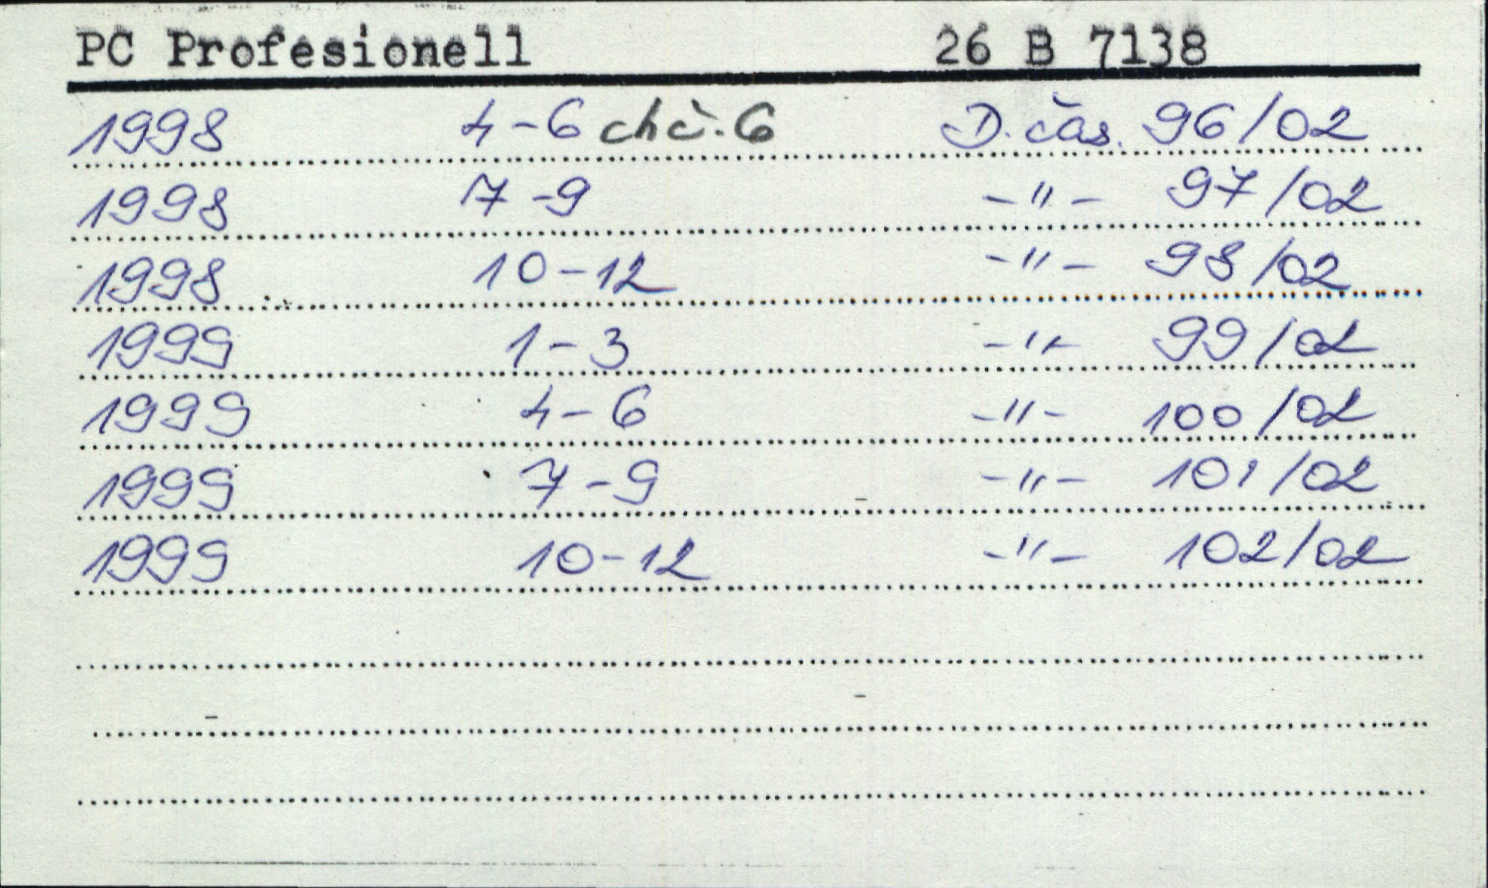 PC Profesionell 26 B 7138
1998 4-6 chč. 6 D. čas. 96/02
1998 7-9 -"- 97/02
1998 10-12 -"- 98/02
1999 1-3 -"- 99/02
1999 4-6 -"- 100/02
1999 7-9 -"- 101/02
1999 10-12 -"- 102/02